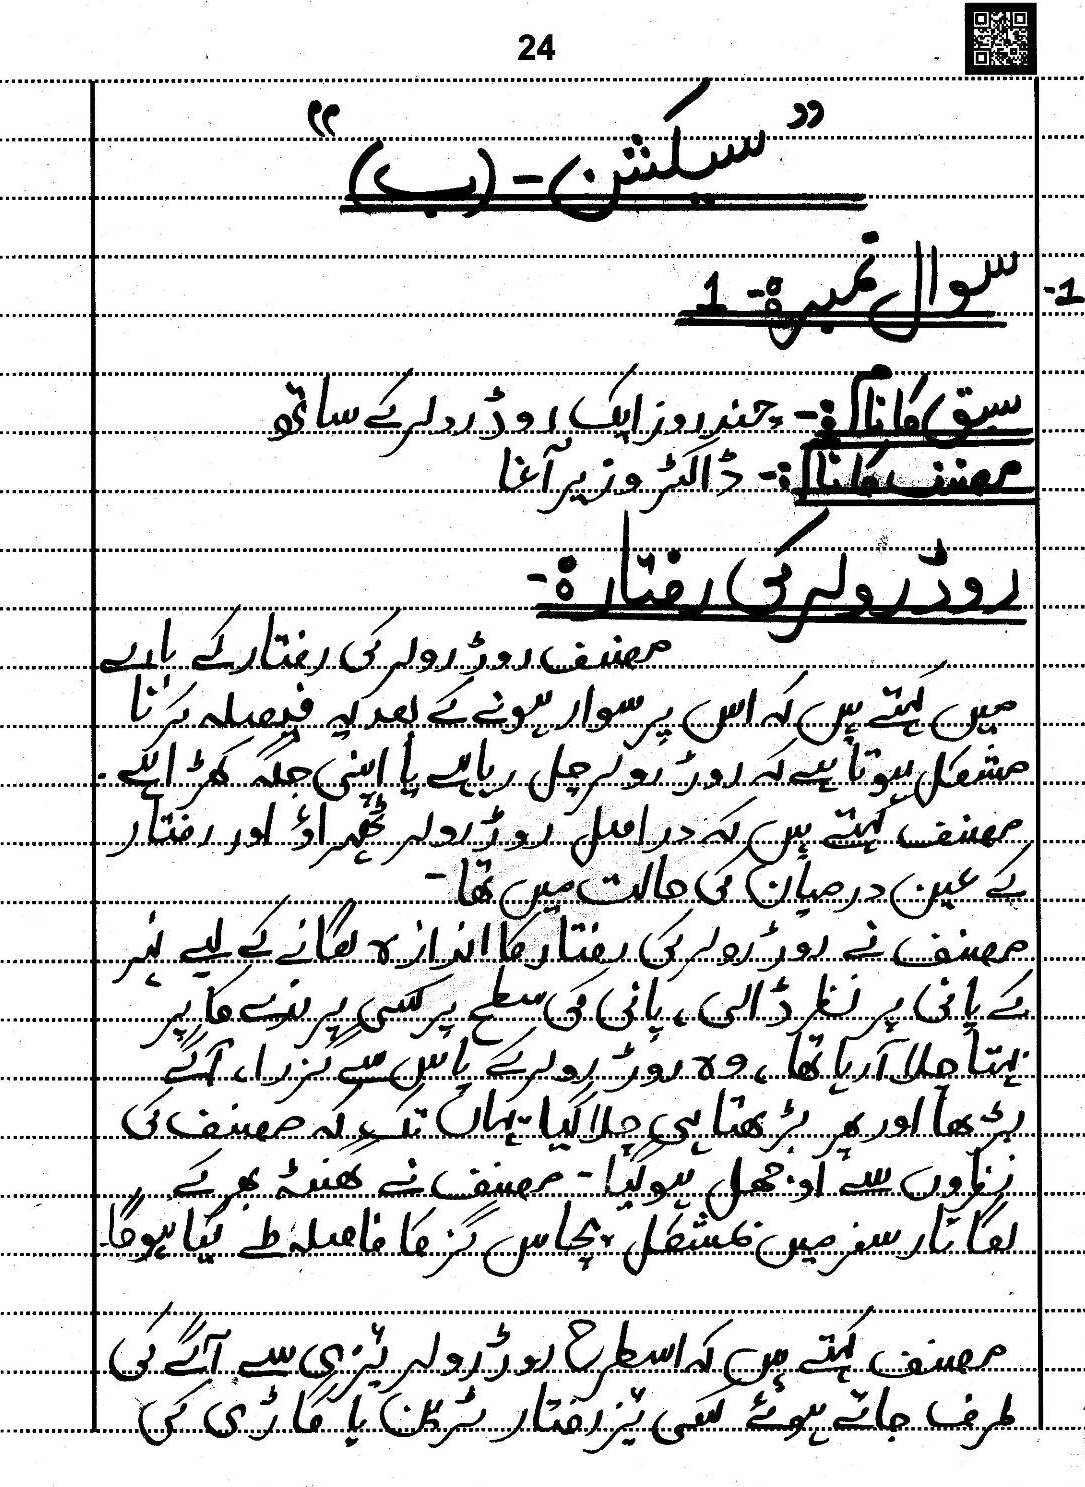 24
"سیکشن - (ب)"
1- سوال نمبر:- 1
سبق کا نام:- چند روز ایک روڈ رولر کے ساتھ
مصنف کا نام:- ڈاکٹر وزیر آغا
روڈ رولر کی رفتار:-
مصنف روڑ رولر کی رفتار کے بارے
میں کہتے ہیں کہ اس پر سوار ہونے کے بعد یہ فیصلہ کرنا
مشکل ہوتا ہے کہ روڑ رولر چل رہا ہے یا اپنی جگہ کھڑا ہے۔
مصنف کہتے ہیں کہ در اصل روڑ رولر ٹھہراؤ اور رفتار
کے عین درمیان کی حالت میں تھا۔
مصنف نے روڑ رولر کی رفتار کا اندازہ لگانے کے لیے نہر
کے پانی پر نظر ڈالی، پانی کی سطح پر کسی پرندے کا پر
بہتا چلا آرہا تھا، وہ روڑ رولر کے پاس سے گزرا، آگے
بڑھا اور پھر بڑھتا ہی چلا گیا۔ یہاں تک کہ مصنف کی
نظروں سے اوجھل ہوگیا۔ مصنف نے گھنٹہ بھر کے
لگاتار سفر میں بمشکل پچاس گز کا فاصلہ طے کیا ہوگا۔
مصنف کہتے ہیں کہ اسطرح روڑ رولر تیزی سے آگے کی
طرف جاتے ہوئے کسی تیز رفتار ٹرین یا گاڑی کی